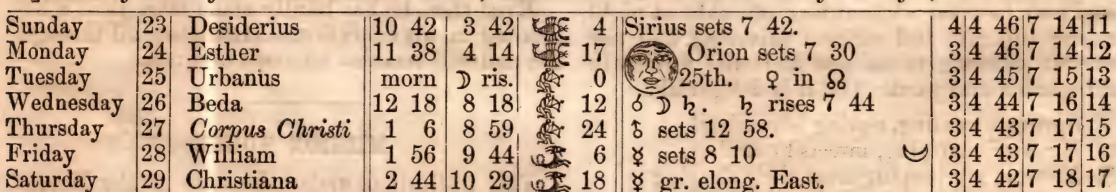 Sunday 23 Desiderius 10 42 3 42 4 Sirius sets 7 42. 4 4 46 7 14 11
Monday 24 Esther 11 38 4 14 17 Orion sets 7 30 3 4 46 7 14 12
Tuesday 25 Urbanus morn ☽ ris. 0 25th. ♀ in ☊ 3 4 45 7 15 13
Wednesday 26 Beda 12 18 8 18 12 ☌ ☽ ♄. ♄ rises 7 44 3 4 44 7 16 14
Thursday 27 Corpus Christi 1 6 8 59 24 sets 12 58. 3 4 43 7 17 15
Friday 28 William 1 56 9 44 6 ☿ sets 8 10 3 4 43 7 17 16
Saturday 29 Christiana 2 44 10 29 18 ☿ gr. elong. East. 3 4 42 7 18 17